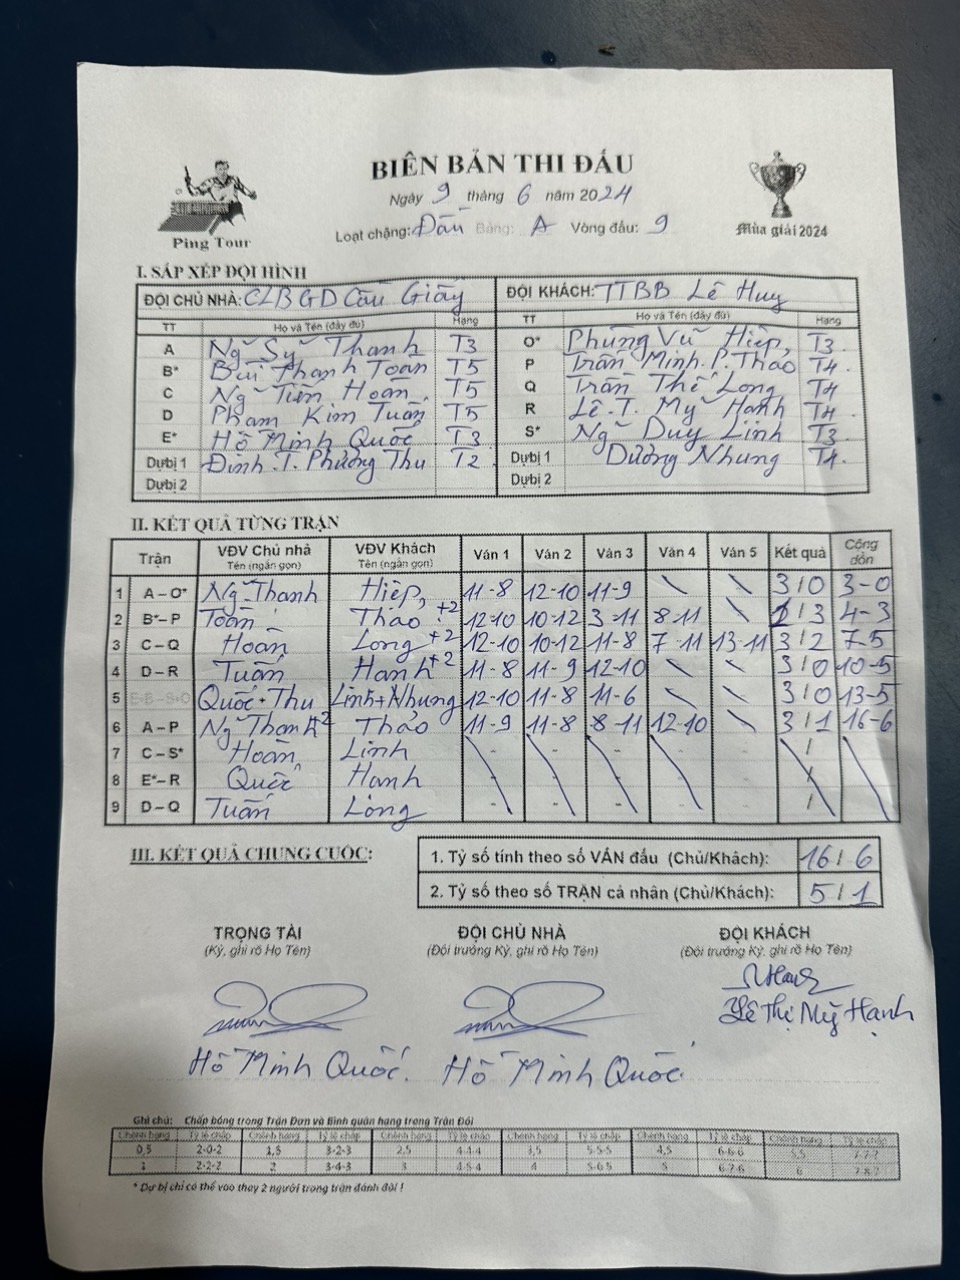 BIÊN BẢN THI ĐẤU
Ngày 9 tháng 6 năm 2024
Loạt chặng: Đấu Bảng: A Vòng đấu: 9
Ping Tour
Mùa giải 2024
I. SẮP XẾP ĐỘI HÌNH
ĐỘI CHỦ NHÀ: CLB GD Cầu Giấy ĐỘI KHÁCH: TTBB Lê Huy
TT Họ và Tên (đầy đủ) Hạng TT Họ và Tên (đầy đủ) Hạng
A Ng Sỹ Thanh T3 O* Phùng Vũ Hiệp T3
B* Bùi Thanh Toàn T5 P Trần Minh P. Thảo T4
C Ng Tiến Hoàn T5 Q Trần Thế Long T4
D Phạm Kim Tuấn T5 R Lê.T. Mỹ Hạnh T4
E* Hồ Minh Quốc T3 S* Ng Duy Linh T3
Dự bị 1 Đinh.T. Phương Thu T2 Dự bị 1 Dương Nhung T4
Dự bị 2 Dự bị 2
II. KẾT QUẢ TỪNG TRẬN
Trận VĐV Chủ nhà Tên (ngắn gọn) VĐV Khách Tên (ngắn gọn) Ván 1 Ván 2 Ván 3 Ván 4 Ván 5 Kết quả Cộng dồn
1 A – O* Ng Thanh Hiệp 11-8 12-10 11-9 \ \ 3/0 3-0
2 B* – P Toàn Thảo +2 12-10 10-12 3-11 8-11 \ 1/3 4-3
3 C – Q Hoàn Long +2 12-10 10-12 11-8 7-11 13-11 3/2 7-5
4 D – R Tuấn Hạnh +2 11-8 11-9 12-10 \ \ 3/0 10-5
5 E+B – S+O Quốc+Thu Linh+Nhung 12-10 11-8 11-6 \ \ 3/0 13-5
6 A – P Ng Thanh+2 Thảo 11-9 11-8 8-11 12-10 \ 3/1 16-6
7 C – S* Hoàn Linh - - - - - /
8 E* – R Quốc Hạnh - - - - - /
9 D – Q Tuấn Long - - - - - /
III. KẾT QUẢ CHUNG CUỘC:
1. Tỷ số tính theo số VÁN đấu (Chủ/Khách): 16/6
2. Tỷ số theo số TRẬN cá nhân (Chủ/Khách): 5/1
TRỌNG TÀI ĐỘI CHỦ NHÀ ĐỘI KHÁCH
(Ký, ghi rõ Họ Tên) (Đội trưởng Ký, ghi rõ Họ Tên) (Đội trưởng Ký, ghi rõ Họ Tên)
Hồ Minh Quốc. Hồ Minh Quốc Lê Thị Mỹ Hạnh
Ghi chú: Chấp bóng trong Trận Đơn và Bình quân hạng trong Trận Đôi
Chênh hạng Tỷ lệ chấp Chênh hạng Tỷ lệ chấp Chênh hạng Tỷ lệ chấp Chênh hạng Tỷ lệ chấp Chênh hạng Tỷ lệ chấp Chênh hạng Tỷ lệ chấp
0,5 2-0-2 1,5 3-2-3 2,5 4-4-4 3,5 5-5-5 4,5 6-6-6 5,5 7-7-7
1 2-2-2 2 3-4-3 3 4-5-4 4 5-6-5 5 6-7-6 6 7-8-7
* Dự bị chỉ có thể vào thay 2 người trong trận đánh đôi !